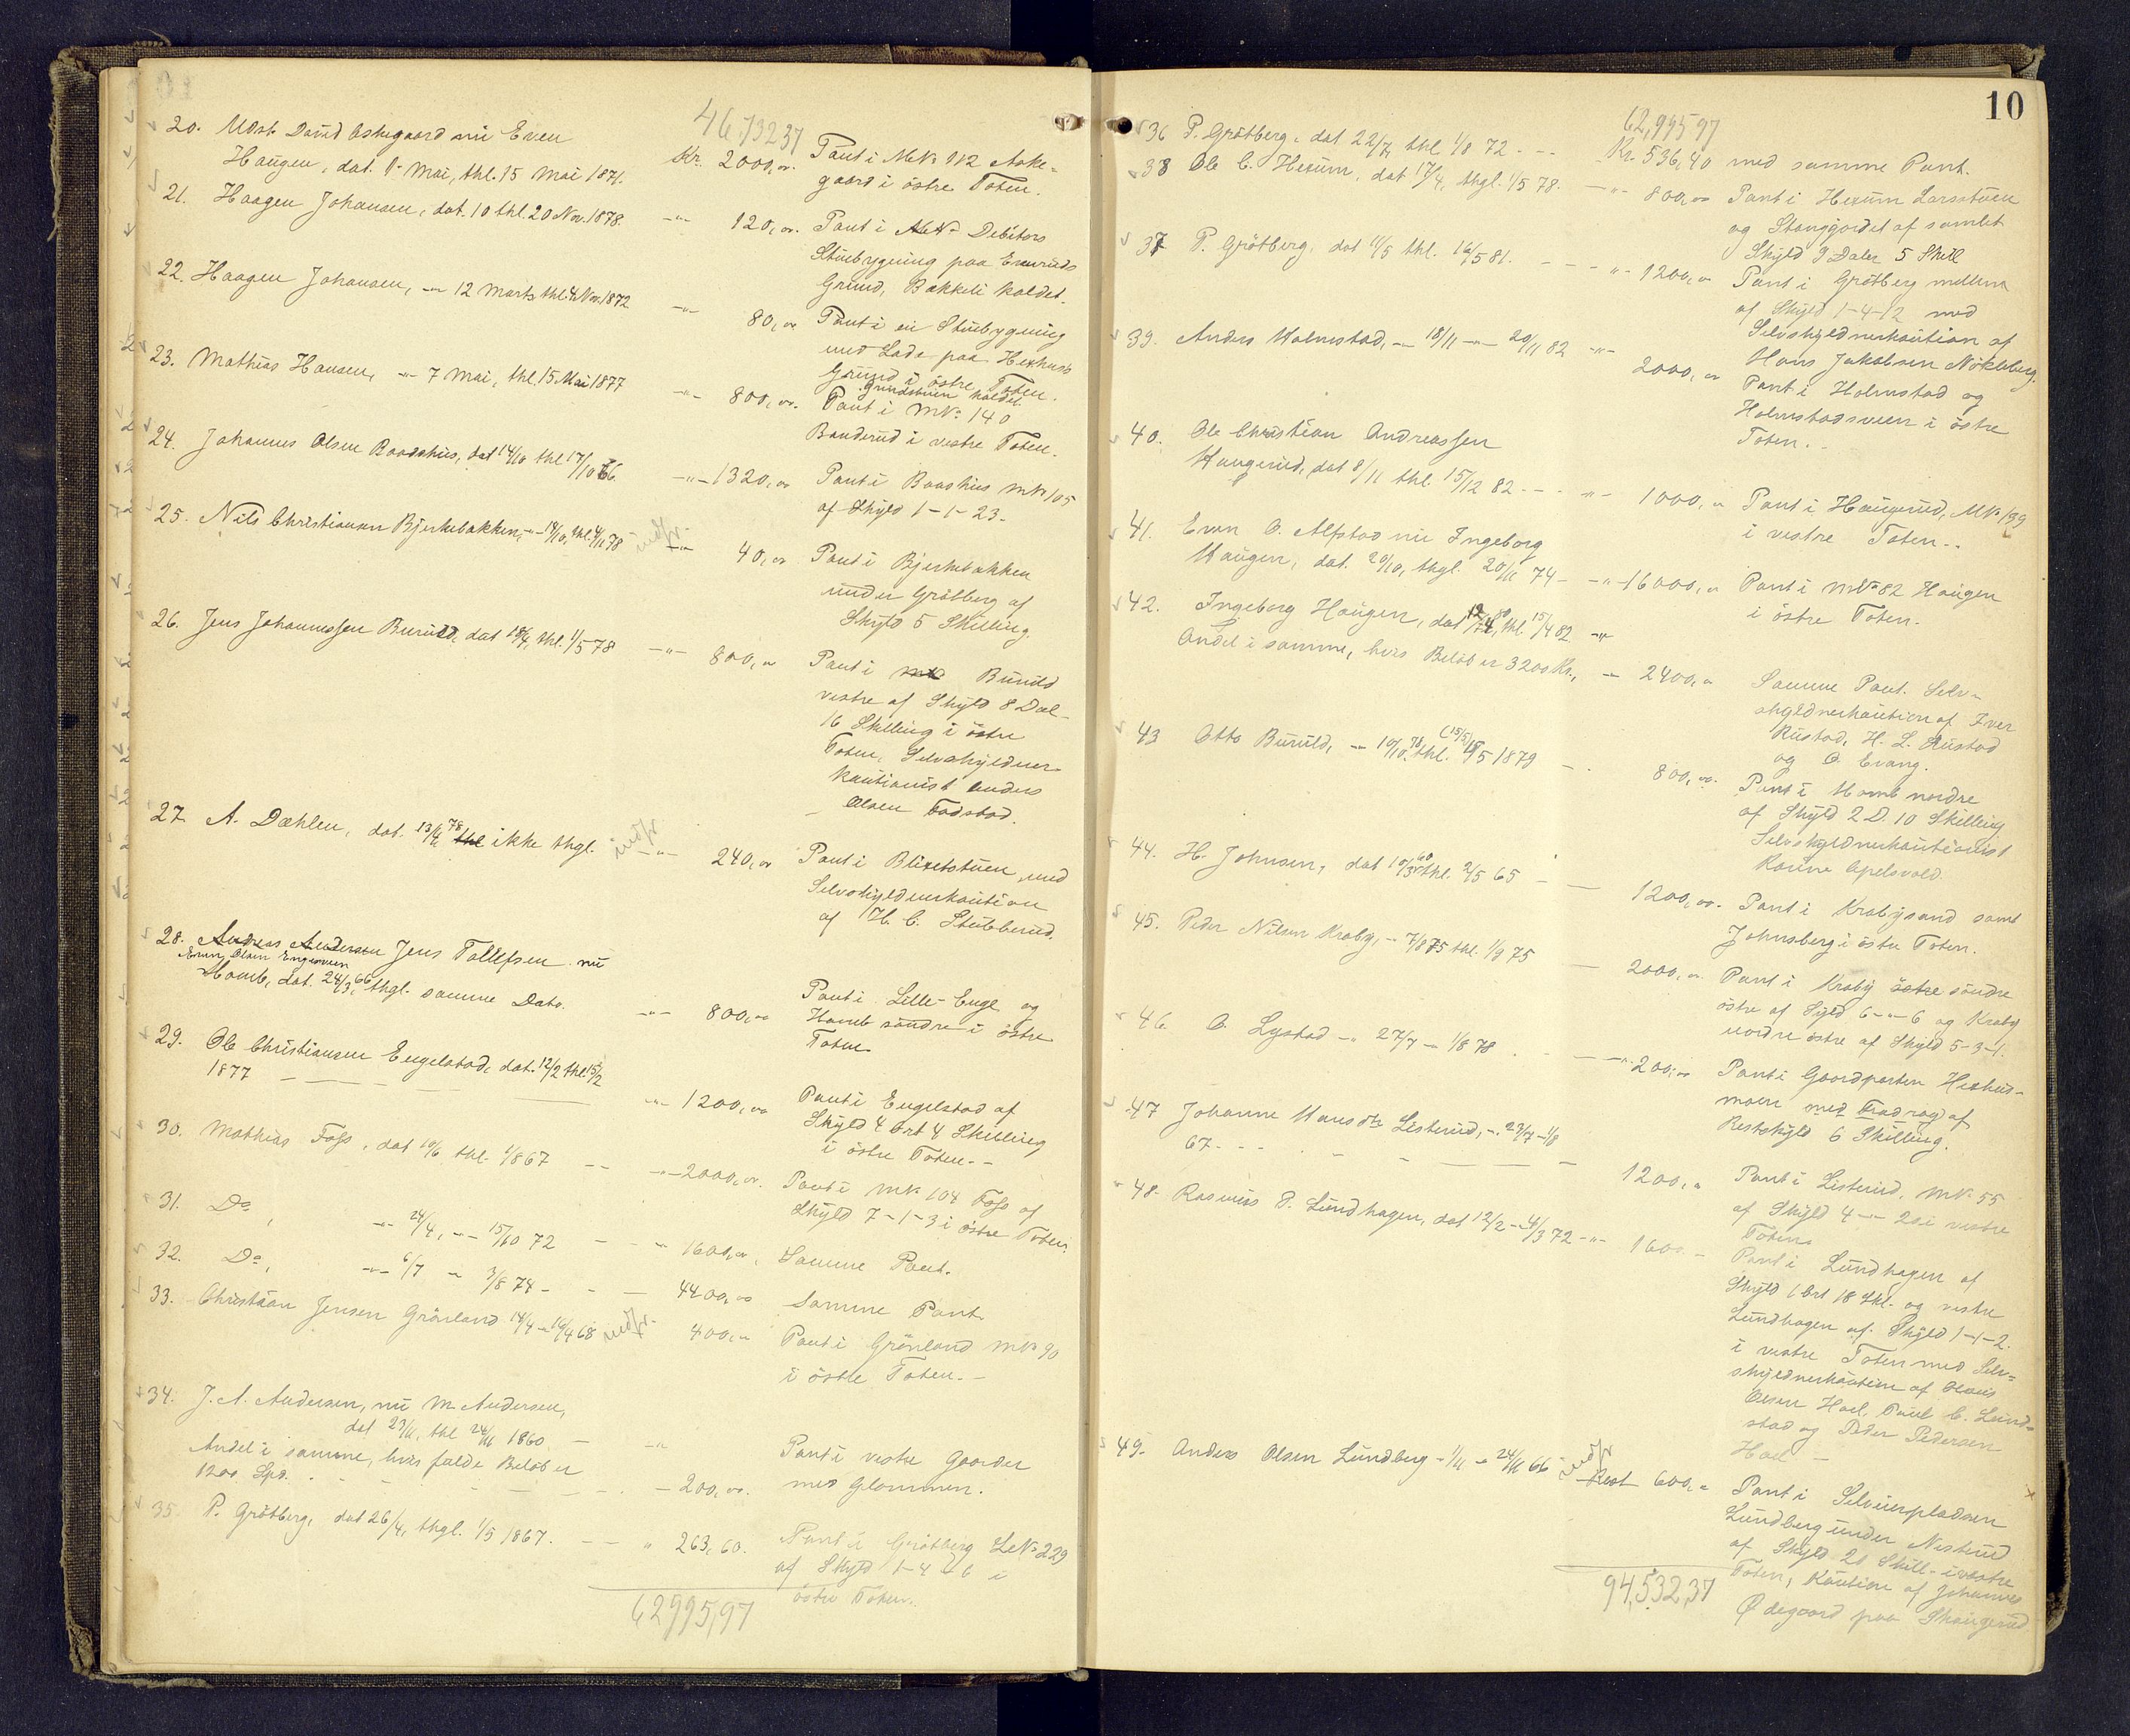 46,732,37
20. Udst. David Askegaard nu Even
Haugen, dat. 1. Mai, thl. 15 Mai 1871.
Kr. 2000,00. Pant i MNo 912 Aske-
gaard i östre Toten.
21. Haagen Johansen, dat. 10 thl. 20 Nov. 1878.
-"- 120,00. Pant i Debitors
Stuebygning paa Everuds
Grund, Bakkeli kaldet.
22. Haagen Johansen, -"- 12 Marts thl. 4 Nov. 1872
-"- 80,00 Pant i en Stuebygning
med Lade paa Hexhus
Grund i östre Toten.
Grundstuen kaldet.
23. Mathias Hansen, -"- 7 Mai, thl. 15 Mai 1877
-"- 800,00. Pant i MNo 140
Banderud i vestre Toten.
24. Johannes Olsen Raadshus, dat 14/10 thl 17/10 66
-"- 1320,00 Pant i Baashus MNo 105
af Skyld 1-1-23.
25. Nils Christiansen Bjerkebakken, -"- 18/10, thl. 4/11 78 indfr.
-"- 40,00 Pant i Bjerkebakken
under Gröttberg af
Skyld 5 Skilling.
26. Jens Johannessen Buruld, dat 18/4, thl. 1/5 78
-"- 800,00 Pant i Buruld
vestre af Skyld 8 Dal-
16 Skilling i östre
Toten, Selvskyldner-
kautionist Anders
Olsen Fodstad.
27. A. Dæhlen, dat. 13/4 78 thl ikke thgl. indfr
-"- 240,00 Pant i Blixetstuen, med
Selvskyldnerkaution
af H. C. Stubberud.
28. Andreas Andersen Jens Tollefsen nu
Even Olsen Engesveen
Homb, dat. 24/3 66, thgl. samme Dato.
-"- 800,00 Pant i Lille-Enge og
Homb söndre i östre
Toten
29. Ole Christiansen Engelstad, dat. 12/2 thl. 15/2
1877
-"- 1200,00 Pant i Engelstad af
Skyld 4 Ort 4 Skilling
i östre Toten.-
30. Mathias Foss, dat 10/6 thl. 1/8 67
-"- 2000,00. Pant i MNo 104 Foss af
Skyld 7-1-3 i östre Toten.
31. Do, -"- 24/4, -"- 15/10 72 -"- 1600,00, Samme Pant.
32. Do, -"- 6/7 -"- 3/8 74 - 4400,00 Samme Pant.
33. Christian Jensen Grönland 14/4 -"- 16/4 68 indfr.
400,00 Pant i Grönland MNo 90
i östre Toten.-
34. J. A. Andersen, nu M. Andersen,
dat 23/11, thl 24/11 1860
Andel i samme, hvis fulde Belöb er
1200 Spd. 200,00.
Pant i vestre Gaarder
med Glommen.
35. P. Gröttberg, dat 26/4, thgl. 1/5 1867.
" 263,60. Pant i Gröttberg LNo 229
af Skyld 1-4-6 i
östre Toten.
62995,97
10
62,995,97
36 P. Gröttberg, dat 22/7 thl. 1/8 72 Kr. 536,40 med samme Pant.
38 Ole C. Hexum, dat 17/4, thgl. 1/5 78. -"- 800,00 Pant i Hexum Larsstuen
og Stangjordet af samlet
Skyld 3 Daler 5 Skill
37 P. Gröttberg, dat 11/5 thl. 16/5 81. -"- 1200,00 Pant i Gröttberg mellem
af Skyld 1-4-12 med
Selvskyldnerkaution af
Hans Jakobsen Nökleberg.
39. Anders Holmstad, -"- 18/11 -"- 20/11 82 -"-
2000,00 Pant i Holmstad og
Holmstadsveen i östre
Toten.-
40. Ole Christian Andreassen
Haugerud, dat 8/11 thl. 15/12 82 -"- 1000,00 Pant i Haugerud, MNo 199
i vestre Toten.-
41. Even O. Alfstad nu Ingeborg
Haugen, dat. 20/10, thgl. 20/11 74 -"- 16000,00 Pant i MNo 82 Haugen
i östre Toten.-
42. Ingeborg Haugen, dat 12/4 80, thl. 15/4 82 -"-
Andel i samme, hvis Belöb er 3200 Kr., - 2400,00 Samme Pant. Selv-
skyldnerkaution af Iver
Rustad, H. L. Rustad
og O. Evang.
43 Otto Buruld, -"- 10/10 78, thl. 15/5 1879
800,00. Pant i Homb nordre
af Skyld 2 D. 10 Skilling.
Selvskyldnerkautionist
Apelsvold.
44. H. Johnsen, dat 10/3 60 thl. 2/5 65
1200,00. Pant i Krabysand samt
Johnsberg i östre Toten.
45. Peder Nilsen Kraby, -"- 7/8 75 thl. 1/9 75
2000,00 Pant i Kraby östre söndre
östre af Skyld 6-"-6 og Kraby
nordre östre af Skyld 5-3-1.
46. O. Lystad -"- 27/7 -"- 1/8 78
-"- 200,00 Pant i Gaardparten Hexhus-
moen med Fradrag af
Restskyld 6 Skilling.
47 Johanne Hansdtr Listerud, -"- 23/7 -"- 1/8
67.
1200,00 Pant i Listerud, MNo 55
af Skyld 4-"-20 i vestre
Toten.
48. Rasmus P. Lundhagen, dat 12/2 -"- 4/3 72 -"- 1600 - Pant i Lundhagen af
Skyld 1 Ort 18 Skl. og vestre
Lundhagen af Skyld 1-1-2.
i vestre Toten med Selv-
skyldnerkaution af Hans
Olsen Hoel, Paul C. Lund-
stad og Peder Pedersen
Hoel -
49. Anders Olsen Lundberg - 1/11 -"- 24/11 66 indfr
Rest 600,00 Pant i Selveierpladsen
Lundberg under Nesterud
af Skyld 20 Skill. i vestre
Toten, Kaution af Johannes
Ödegaard paa Skaugerud
94,532,37